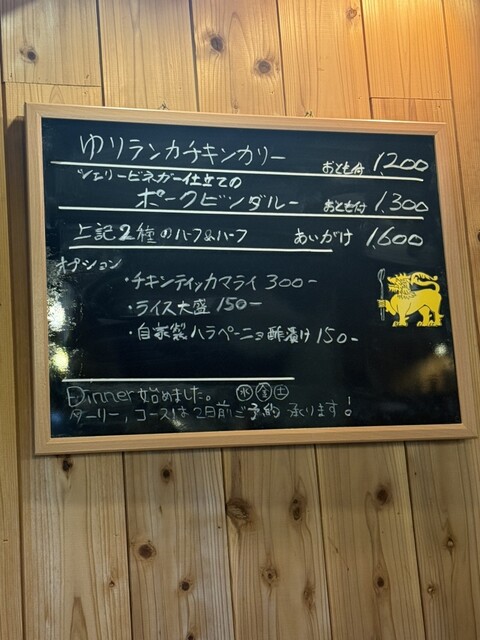 ゆリランカチキンカリー おとも付 1,200
シェリービネガー仕立ての
ポークビンダルー おとも付 1,300
上記2種のハーフ&ハーフ あいがけ 1,600
オプション
・チキンティッカマライ 300-
・ライス大盛 150-
・自家製ハラペーニョ酢漬け 150-
Dinner始めました。 水 金 土
ターリー,コースは2日前ご予約 承ります!